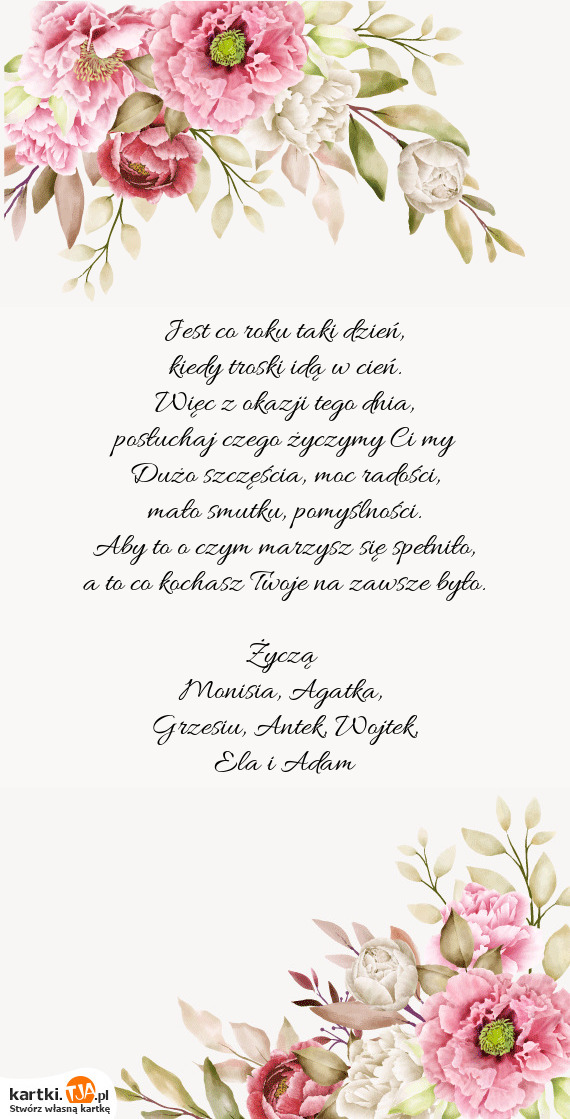 Jest co roku taki dzień,
kiedy troski idą w cień.
Więc z okazji tego dnia,
posłuchaj czego życzymy Ci my
Dużo szczęścia, moc radości,
mało smutku, pomyślności.
Aby to o czym marzysz się spełniło,
a to co kochasz Twoje na zawsze było.
Życzą
Monisia, Agatka,
Grzesiu, Antek, Wojtek,
Ela i Adam
kartki.TJA.pl
Stwórz własną kartkę